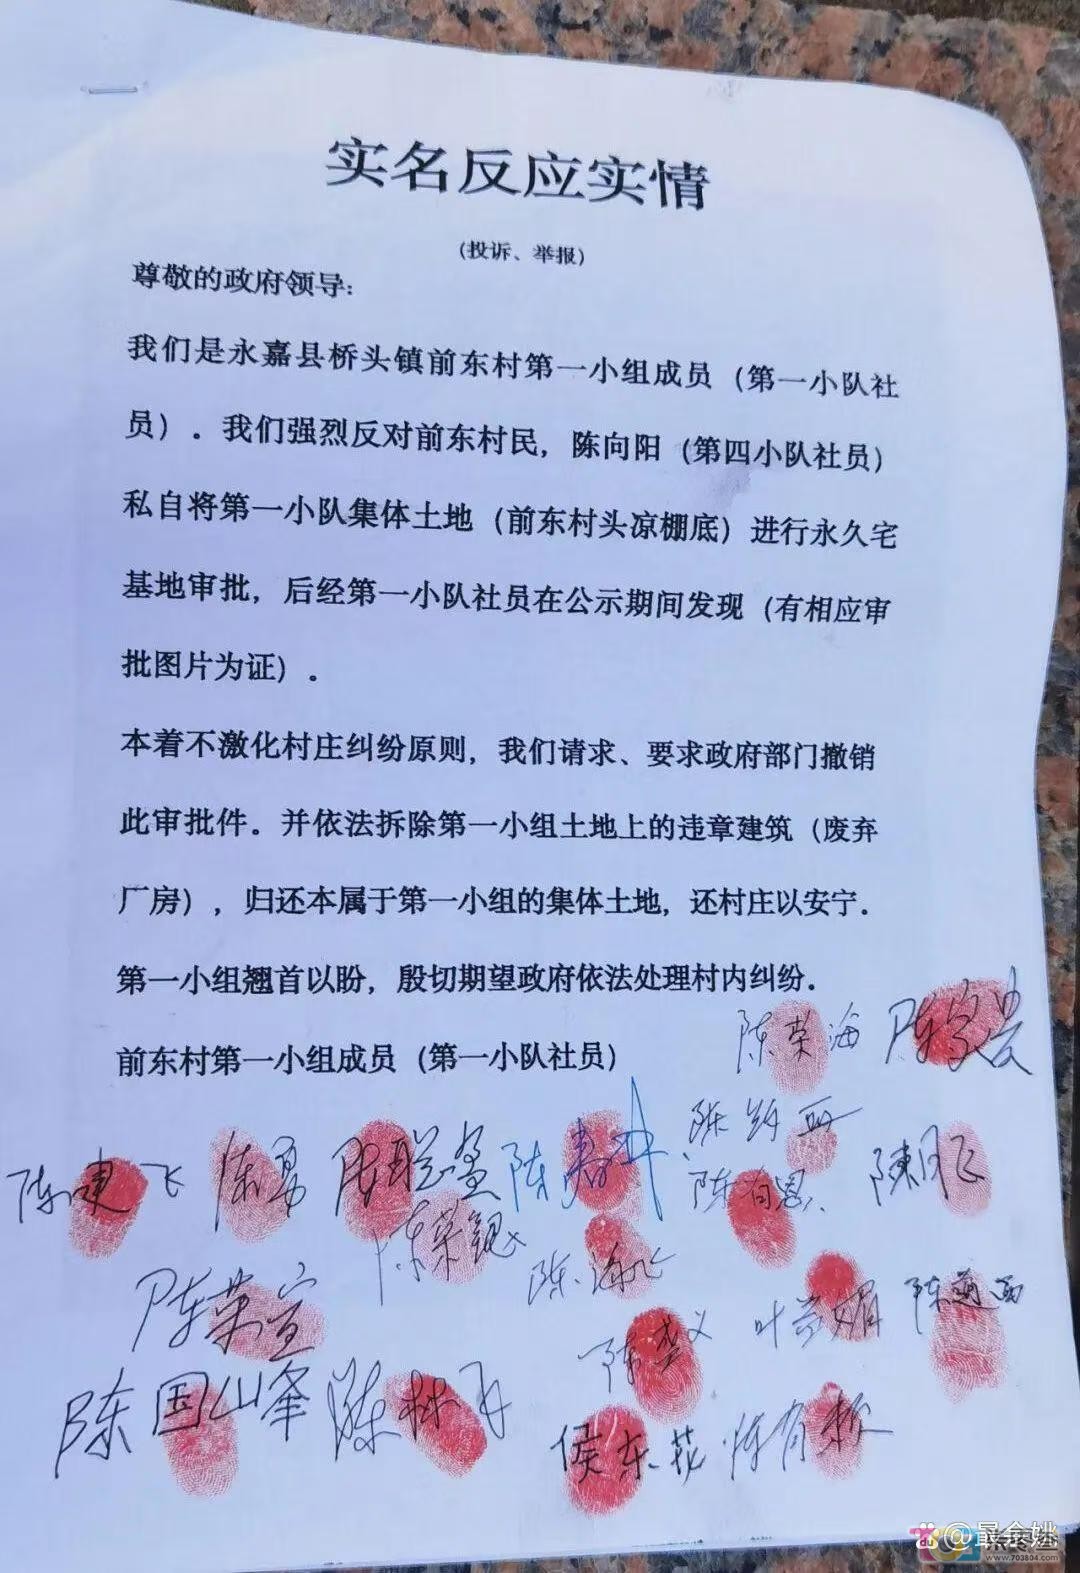 实名反应实情
(投诉、举报)
尊敬的政府领导:
我们是永嘉县桥头镇前东村第一小组成员（第一小队社
员）. 我们强烈反对前东村民, 陈向阳（第四小队社员）
私自将第一小队集体土地（前东村头凉棚底）进行永久宅
基地审批, 后经第一小队社员在公示期间发现（有相应审
批图片为证）.
本着不激化村庄纠纷原则, 我们请求、要求政府部门撤销
此审批件。并依法拆除第一小组土地上的违章建筑（废弃
厂房）, 归还本属于第一小组的集体土地, 还村庄以安宁.
第一小组翘首以盼, 殷切期望政府依法处理村内纠纷.
前东村第一小组成员（第一小队社员）
陈荣海
陈建飞 陈勇 陈春林
陈有恩 陳月飞
陈荣宣
陈国峰 陈林
侯东花
www.703804.com